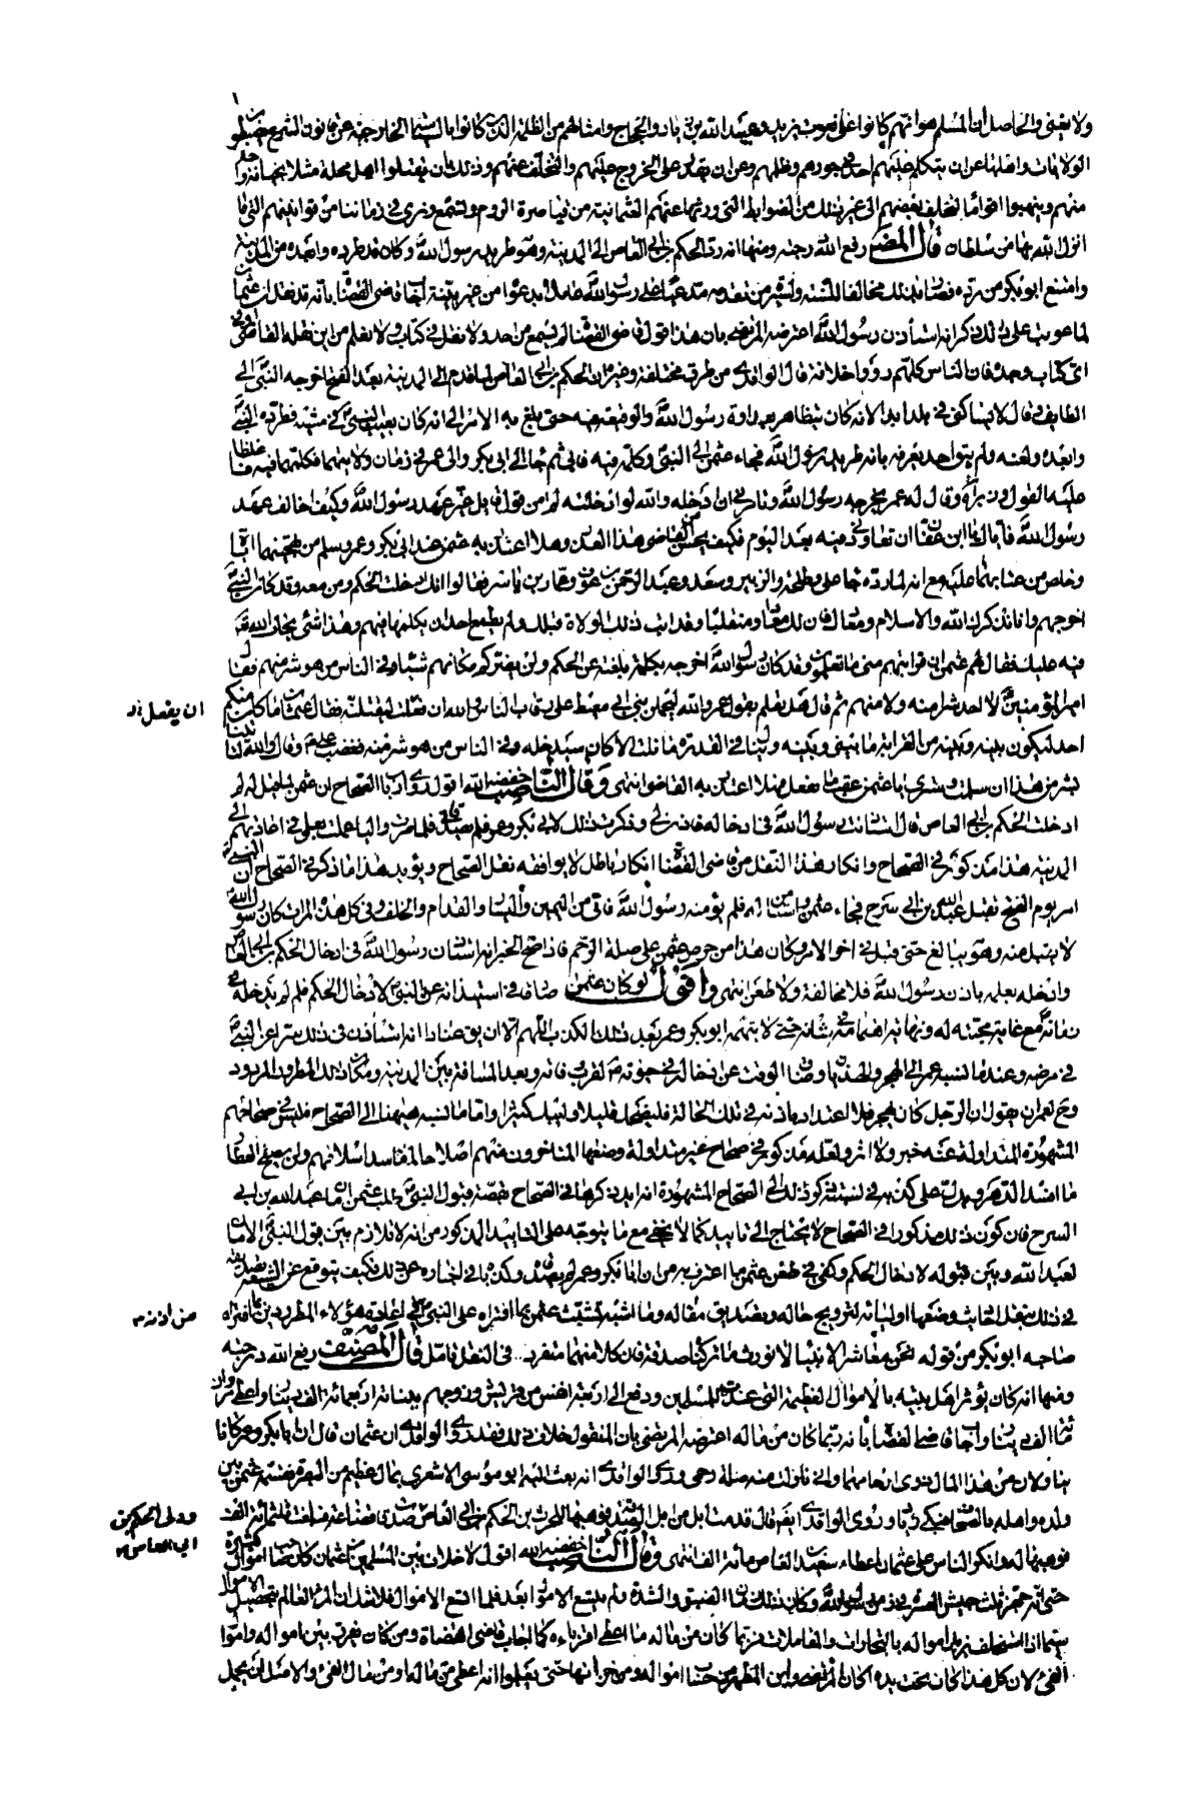 ولا يخفى والحاصل ان المسلم هو انهم كانوا على خوف من يزيد وعبيد الله بن زياد والحجاج وامثالهم من الظلمة الذين كانوا بالسياسة الخارجة عن قانون الشرع
الولايات واهلها عن ان يتكلم عليهم احد في جورهم وظلمهم وعن ان يقدر على الخروج عليهم والتخلف عنهم وذلك بان يقتلوا اهل محلة مثلا بخيانة واحد
منهم وينهبوا اقواما بتخلف بعضهم الى غير ذلك من الضوابط التي ورثها عنهم العثمانية من قياصرة الروم ونسمع ونرى في زماننا من قوانينهم التي ما
انزل الله بها من سلطان قال المصنف رفع الله درجته ومنها انه رد الحكم بن ابي العاص الى المدينة وهو طريد رسول الله وكان قد طرده وابعده من المدينة
وامتنع ابو بكر من رده فصار بذلك مخالفا للسنة ولسيرة من تقدمه مدعيا على رسول الله عاملا بدعواه من غير بينة اجاب قاضي القضاة بانه قد نقل ان عثمان
لما عوتب على ذلك ذكر انه استأذن رسول الله اعترضه المرتضى بان هذا قول قاضي القضاة لم يسمع من احد ولا نقل في كتاب ولا يعلم من اين نقله القاضي او في
اي كتاب وجده فان الناس كلهم رووا خلافه قال الواقدي من طرق مختلفة وغيره ان الحكم بن ابي العاص لما قدم الى المدينة بعد الفتح اخرجه النبي الى
الطايف وقال لا يساكنني في بلد ابدا لانه كان يتظاهر بعداوة رسول الله والوقيعة فيه حتى بلغ به الامر الى انه كان يعيب النبي في مشيه فطرده النبي
وابعده ولعنه ولم يبق احد يعرفه بانه طريد رسول الله فجاء عثمن الى النبي وكلمه فيه فابى ثم جاء الى ابي بكر والى عمر في زمان ولايتهما فكلمهما فيه فاغلظا
عليه القول وزبراه وقال له عمر يخرجه رسول الله وتامرني ان ادخله والله لو ادخلته لم آمن قول قايل غير عهد رسول الله وكيف اخالف عهد
رسول الله فاياك يا ابن عفان ان تعاودني فيه بعد اليوم فكيف يحسن القاضي هذا العذر وهلا اعتذر به عثمن عند ابي بكر وعمر وسلم من تهجينهما اياه
وخلص من عتابهما عليه مع انه لما رده جاء علي وطلحة والزبير وسعد وعبد الرحمن بن عوف وعمار بن ياسر فقالوا انك ادخلت الحكم ومن معه وقد كان النبي
اخرجهم وانا نذكرك الله والاسلام ومعادك فان لك معادا ومنقلبا وقد ابت ذلك الولاة قبلك ولم يطمع احد ان يكلمها فيهم وهذا شيء نخاف الله
فيه عليك فقال لهم عثمن ان قرابتهم مني ما تعلمون وقد كان رسول الله اخرجه بكلمة بلغته عن الحكم ولن يضركم مكانهم شيئا وفي الناس من هو شر منهم فقال
امير المؤمنين لا احد شر منه ولا منهم ثم قال هل تعلم بقول عمر والله ليحملن بني ابي معيط على رقاب الناس والله ان فعلت ليقتلنه فقال عثمن ما كان منكم
ان يفعل ن‍‍ر
احد ليكون بينه وبينه من القرابة ما بيني وبينه وينال في القدرة ما نلت الا كان سيدخله وفي الناس من هو شر منه فغضب علي وقال والله لتاتينا
بشر من هذا ان سلمت وسترى يا عثمن غب ما تفعل فهلا اعتذر به القاضي انتهى وقال الناصب خفضه الله اقول روى ارباب الصحاح ان عثمن لما قيل له لم
ادخلت الحكم بن ابي العاص قال استأذنت رسول الله في ادخاله فاذن لي وذكرت ذلك لابي بكر وعمر فلم يصدقاني فلما صرت واليا عملت بعلمي في اعادتهم الى
المدينة هذا مذكور في الصحاح وانكار هذا النقل من قاضي القضاة انكار باطل لا يوافقه نقل الصحاح ويؤيد هذا ما ذكر في الصحاح ان النبي
امر يوم الفتح بقتل عبد الله بن ابي سرح فجاء عثمن واستأمن منه فلم يؤمنه رسول الله فاتى من اليمين واليسار والقدام والخلف وفي كل هذه المرات كان رسول الله
لا يقبل منه وهو يبالغ حتى قبل في اخر الامر وكان هذا من حرص عثمن على صلة الرحم فاذا صح الخبر انه استأذن رسول الله في ادخال الحكم بن ابي العاص
وادخله بعلمه باذن رسول الله فلا مخالفة ولا طعن انتهى واقول لو كان عثمن صادقا في استيذانه عن النبي لادخال الحكم فلم لم يدخله في
زمانه مع غاية محبته له ونهاية اهتمامه في شانه حتى لا يتهمه ابو بكر وعمر بعد ذلك بالكذب اللهم الا ان يق عنادا انه استأذن في ذلك سرا عن النبي
في مرضه وعندما نسبه عمر الى الهجر والهذيان وضاق الوقت عن ادخاله في حيوته لقرب وفاته وبعد المسافة بين المدينة ومكان ذلك المطرود المردود
وح لعمر ان يقول ان الرجل كان يهجر فلا اعتداد باذنه في تلك الحالة فليضحك قليلا وليبك كثيرا واما ما نسبه هيهنا الى الصحاح فليس في صحاحهم
المشهورة المتداولة عنه خبر ولا اثر ولعله مذكور في صحاح غير متداولة وضعها المتاخرون منهم اصلاحا لمفاسد اسلافهم ولن يصلح العطار
ما افسد الدهر ويدلك على كذبه في نسبته ذكر ذلك الى الصحاح المشهورة انه ايد ذكرها في الصحاح بقصة قبول النبي طلب عثمن امان عبد الله بن ابي
السرح فان كون ذلك مذكورا في الصحاح لا يحتاج الى تاييد كما لا يخفى مع ما يتوجه على التاييد المذكور من انه لا تلازم بين قبول النبي الامان
لعبد الله وبين قبوله لادخال الحكم وكفى في طعن عثمن ما اعترف به من ان ابا بكر وعمر لم يصدقاه وكذباه في اخباره عن ذلك فكيف يتوقع عن الشيعة تصديقه
في ذلك بنقل احاديث وضعها اوليائه لترويج حاله وتصديق مقاله وما اشبه تشبث عثمن بما افتراه على النبي في اعادة هؤلاء المطرودين بما افتراه
من اذنه م
صاحبه ابو بكر من قوله نحن معاشر الانبياء لا نورث ما تركناه صدقة فان كلا منهما متفرد في النقل فتامل قال المصنف رفع الله درجته
ومنها انه كان يؤثر اهل بيته بالاموال العظيمة التي عنده للمسلمين ودفع الى اربعة انفس من قريش وزوجهم ببناته اربعمائة الف دينار واعطى مروان
مائة الف دينار واجاب قاضي القضاة بانه ربما كان من ماله اعترضه المرتضى بان المنقول خلاف ذلك فقد روى الواقدي ان عثمان قال ان ابا بكر وعمر كانا
يناولان من هذا المال ذوي ارحامهما واني ناولت منه صلة رحمي وروى الواقدي انه بعث اليه ابو موسى الاشعري بمال عظيم من البصرة فقسمه عثمن بين
ولده واهله بالصحاف فبكى زياد وروى الواقدي ايضا قال قدمت ابل من ابل الصدقة فوهبها للحرث بن الحكم بن ابي العاص صدقات قضاعة فبلغت ثلثمائة الف
وولى الحكم بن
ابي العاص م
فوهبها له وانكر الناس على عثمان اعطاء سعيد بن العاص مائة الف انتهى وقال الناصب خفضه الله اقول لا خلاف بين المسلمين ان عثمان كان صاحب اموال كثيرة
حتى انه جهز ثلث جيش العسرة في زمن رسول الله وكان ذلك زمان الضيق والشدة ولم يتسع الاموال بعد فلما اتسع الاموال فلا شك ان المرء العالم بتحصيل الاموال
سيما اذا استخلف يزيد امواله بالتجارات والمعاملات فربما كان من ماله ما اعطى اقرباءه كما اجاب قاضي القضاة ومن كان يفرق بين امواله واموال
الفيء لان كل هذا كان تحت يده اكان المرتضى وابن المطهر من حساب امواله ومن خزانها حتى يعلموا انه اعطى من ماله او من مال الفيء والاصل ان يحمل